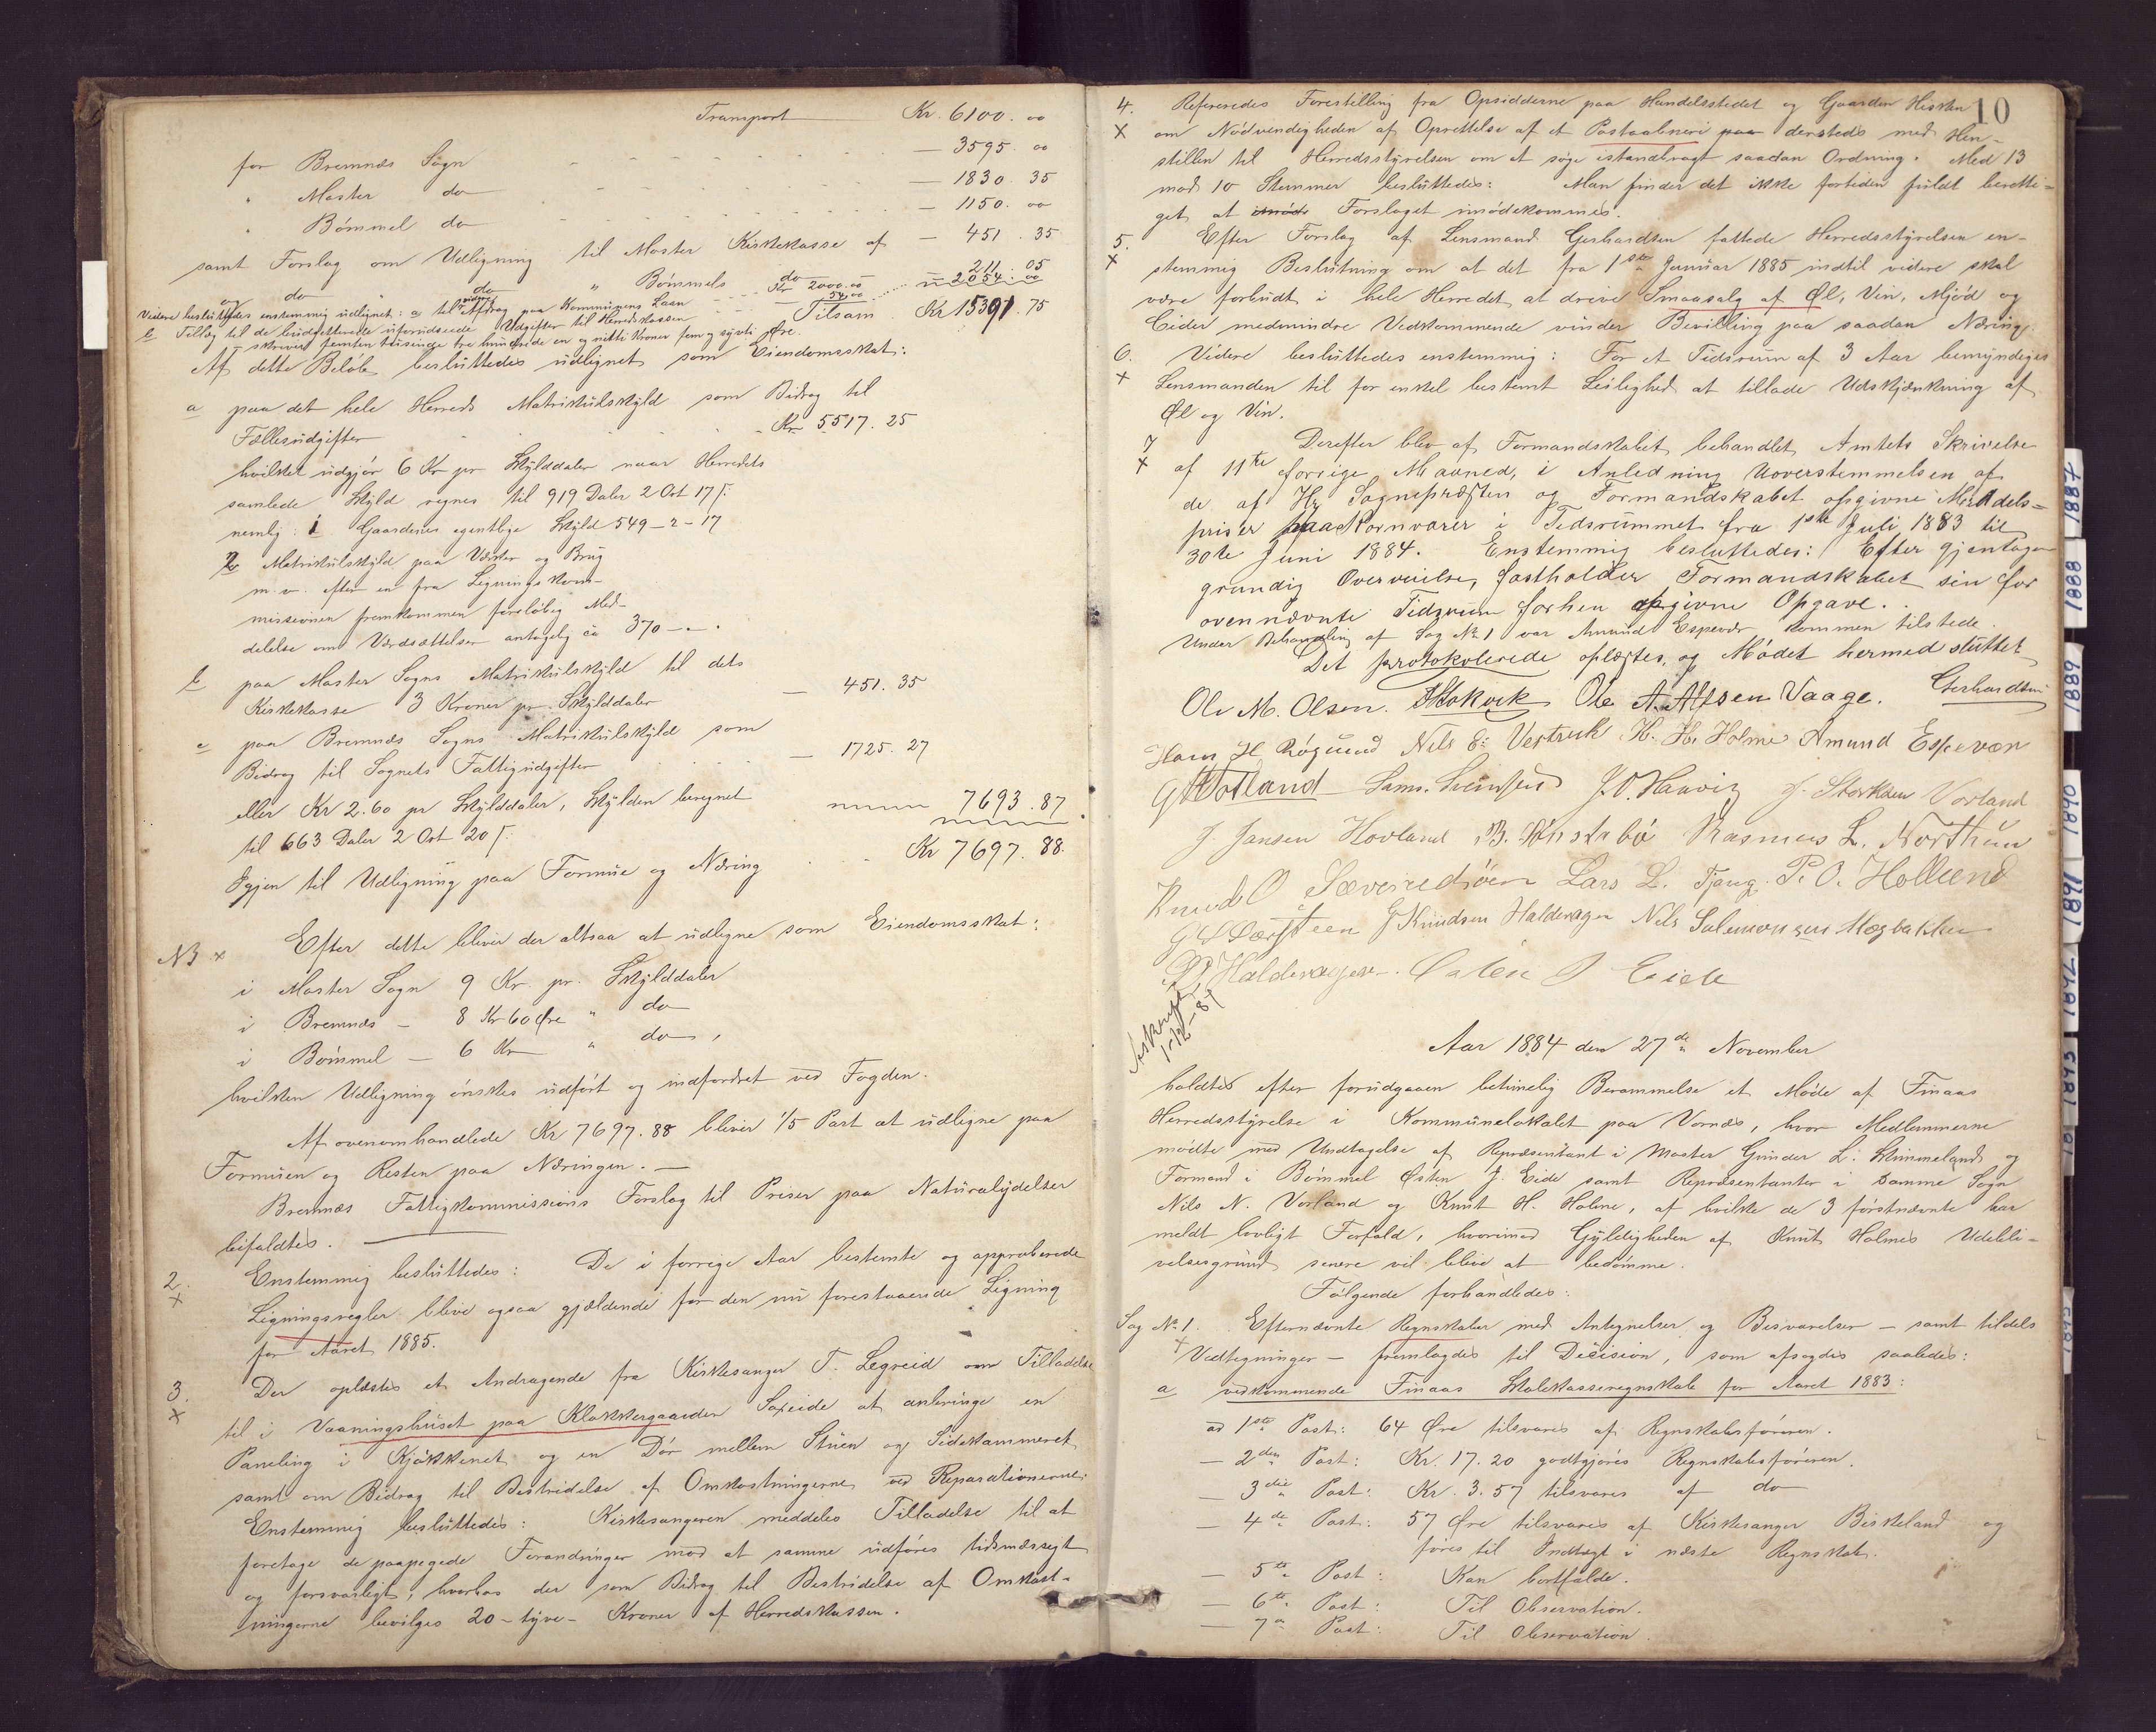 Transport Kr. 6100. oo
for Bremnæs Sogn — 3595. oo
" Moster do — 1830. 35
" Bömmel do — 1150. oo
samt Forslag om Udligning til Moster Kirkekasse af — 451. 35
og do " " Bömmels do 211. 05
Videre besluttedes enstemmig udlignet: a til videre Afdrag paa Kommunens Laan Kr 2000.00
b Tillæg til de budgetterede uforudseede Udgifter til Herredskassen — 54.00 — 2054. 00
Tilsam Kr 15391. 75
— skriver femten tusinde tre hundrede en og nitti Kroner fem og sytti Øre.
Af dette Beløb besluttedes udlignet som Eiendomsskat:
a paa det hele Herreds Matrikulskyld som Bidrag til
Fællesudgifter Kr 5517. 25
hvilket udgjör 6 Kr pr Skylddaler naar Herredets
samlede Skyld regnes til 919 Daler 2 Ort 17 ſ:
nemlig: 1 Gaardenes egentlige Skyld 549 - 2 - 17
2 Matrikulskyld paa Værker og Brug
m.v. efter en fra Ligningskom-
missionen fremkommen foreløbig Med-
delelse om Værdsættelser antagelig ca 370 - " - "
b paa Moster Sogns Matrikulskyld til dets
Kirkekasse 3 Kroner pr. Skylddaler — 451. 35
c paa Bremnæs Sogns Matrikulskyld som
Bidrag til Sognets Fattigudgifter — 1725. 27
eller Kr 2.60 pr Skylddaler, Skylden beregnet
til 663 Daler 2 Ort 20 ſ: 7693. 87
Igjen til Udligning paa Formue og Næring Kr 7697. 88.
NB x Efter dette bliver der altsaa at udligne som Eiendomsskat:
i Moster Sogn 9 Kr. pr. Skylddaler
i Bremnæs — 8 Kr 60 Øre " do
i Bömmel — 6 Kr " do,
hvilken Udligning önskes udfört og indfordret ved Fogden.
Af ovenomhandlede Kr 7697. 88 bliver 1/5 Part at udligne paa
Formuen og Resten paa Næringen. —
Bremnæs Fattigkommissions Forslag til Priser paa Naturalydelser
bifaldtes.
2. x Enstemmig besluttedes: De i forrige Aar bestemte og approberede
Ligningsregler blive ogsaa gjældende for den nu forestaaende Ligning
for Aaret 1885.
3. x Der oplæstes et Andragende fra Kirkesanger T. Legreid om Tilladelse
til i Vaaningshuset paa Klokkergaarden Søreide at anbringe en
Paneling i Kjökkenet og en Dör mellem Stuen og Sidekammeret
samt om Bidrag til Bestridelse af Omkostningerne ved Reparationerne.
Enstemmig besluttedes: Kirkesangeren meddeles Tilladelse til at
foretage de paapegede Forandringer mod at samme udföres tidsmæssigt
og forsvarligt, hvorhos der som Bidrag til Bestridelse af Omkost-
ningerne bevilges 20 - tyve - Kroner af Herredskassen.
10
4. x Refereredes Forestilling fra Opsidderne paa Handelsstedet og Gaarden Hisken
om Nödvendigheden af Oprettelse af et Postaabneri paa dersteds med Hen-
stillen til Herredsstyrelsen om at söge istandbragt saadan Ordning. Med 13
mod 10 Stemmer besluttedes: Man finder det ikke fortiden fuldt beretti-
get at imöde Forslaget imödekommes.
5. x Efter Forslag af Lensmand Gerhardsen fattede Herredsstyrelsen en-
stemmig Beslutning om at det fra 1ste Januar 1885 indtil videre skal
være forbudt i hele Herredet at drive Smaasalg af Øl, Vin, Mjöd og
Cider medmindre Vedkommende vinder Bevilling paa saadan Næring.
6. x Videre besluttedes enstemmig: For et Tidsrum af 3 Aar bemyndiges
Lensmanden til for enkel bestemt Leilighed at tillade Udskjænkning af
Øl og Vin.
7 x Derefter blev af Formandskabet behandlet Amtets Skrivelse
af 11te forrige Maaned, i Anledning Uoverstemmelsen af
de af Hr. Sognepræsten og Formandskabet opgivne Middels-
priser paa Kornvarer i Tidsrummet fra 1ste Juli 1883 til
30te Juni 1884. Enstemmig besluttedes: Efter gjentagen
grundig Overveielse, fastholder Formandskabet sin for
ovennævnte Tidsrum forhen afgivne Opgave.
Under Behandling af Sag No 1 var Amund Espevær kommen tilstede.
Det protokolerede oplæstes, og Mödet hermed sluttet
Ole M. Olsen. Ole A. Alfsen Vaage. Gerhardsen
Hans H. Rögsund Nils E: Vestvik H. Hs. Holme Amund Espevær
Sams. Svensen J. O. Hauvig J. Storksen Vorland
J. Jansen Hovland Rasmus L. Northun
Knud O Sæverudsöen Lars L. Tjong. P. O. Hollund
G Knudsen Haldorsagen Nils Salemonsen Mægbakken
Østen J Eide
Avskrevet 1-12-84
Aar 1884 den 27de November
holdtes efter forudgaaen betimelig Berammelse et Möde af Finaas
Herredsstyrelse i Kommunelokalet paa Vornæs, hvor Medlemmerne
mödte med Undtagelse af Repræsentant i Moster Gunder L. Mimmeland og
Formand i Bömmel Østen J. Eide samt Repræsentanter i samme Sogn
Nils N. Vorland og Knut H. Holme, af hvilke de 3 förstnævnte har
meldt lovligt Forfald, hvorimod Gyldigheden af Knut Holmes Udebli-
velsesgrund senere vil blive at bedömme.
Fölgende forhandledes:
Sag No 1. x Efternævnte Regnskaber med Antegnelser og Besvarelser — samt tildels
Vedtegninger — fremlagdes til Decision, som afsagdes saaledes:
a vedkommende Finaas Skolekasseregnskab for Aaret 1883:
ad 1ste Post: 64 Øre tilsvares af Regnskabsföreren.
— 2den Post: Kr. 17.20 godtgjöres Regnskabsföreren.
— 3die Post: Kr. 3.57 tilsvares af do
— 4de Post: 57 Øre tilsvares af Kirkesanger Birkeland og
föres til Indtægt i næste Regnskab.
— 5te Post: Kan bortfalde.
— 6te Post: Til Observation.
— 7de Post: Til Observation.
1887
1888
1889
1890
1891
1892
1893